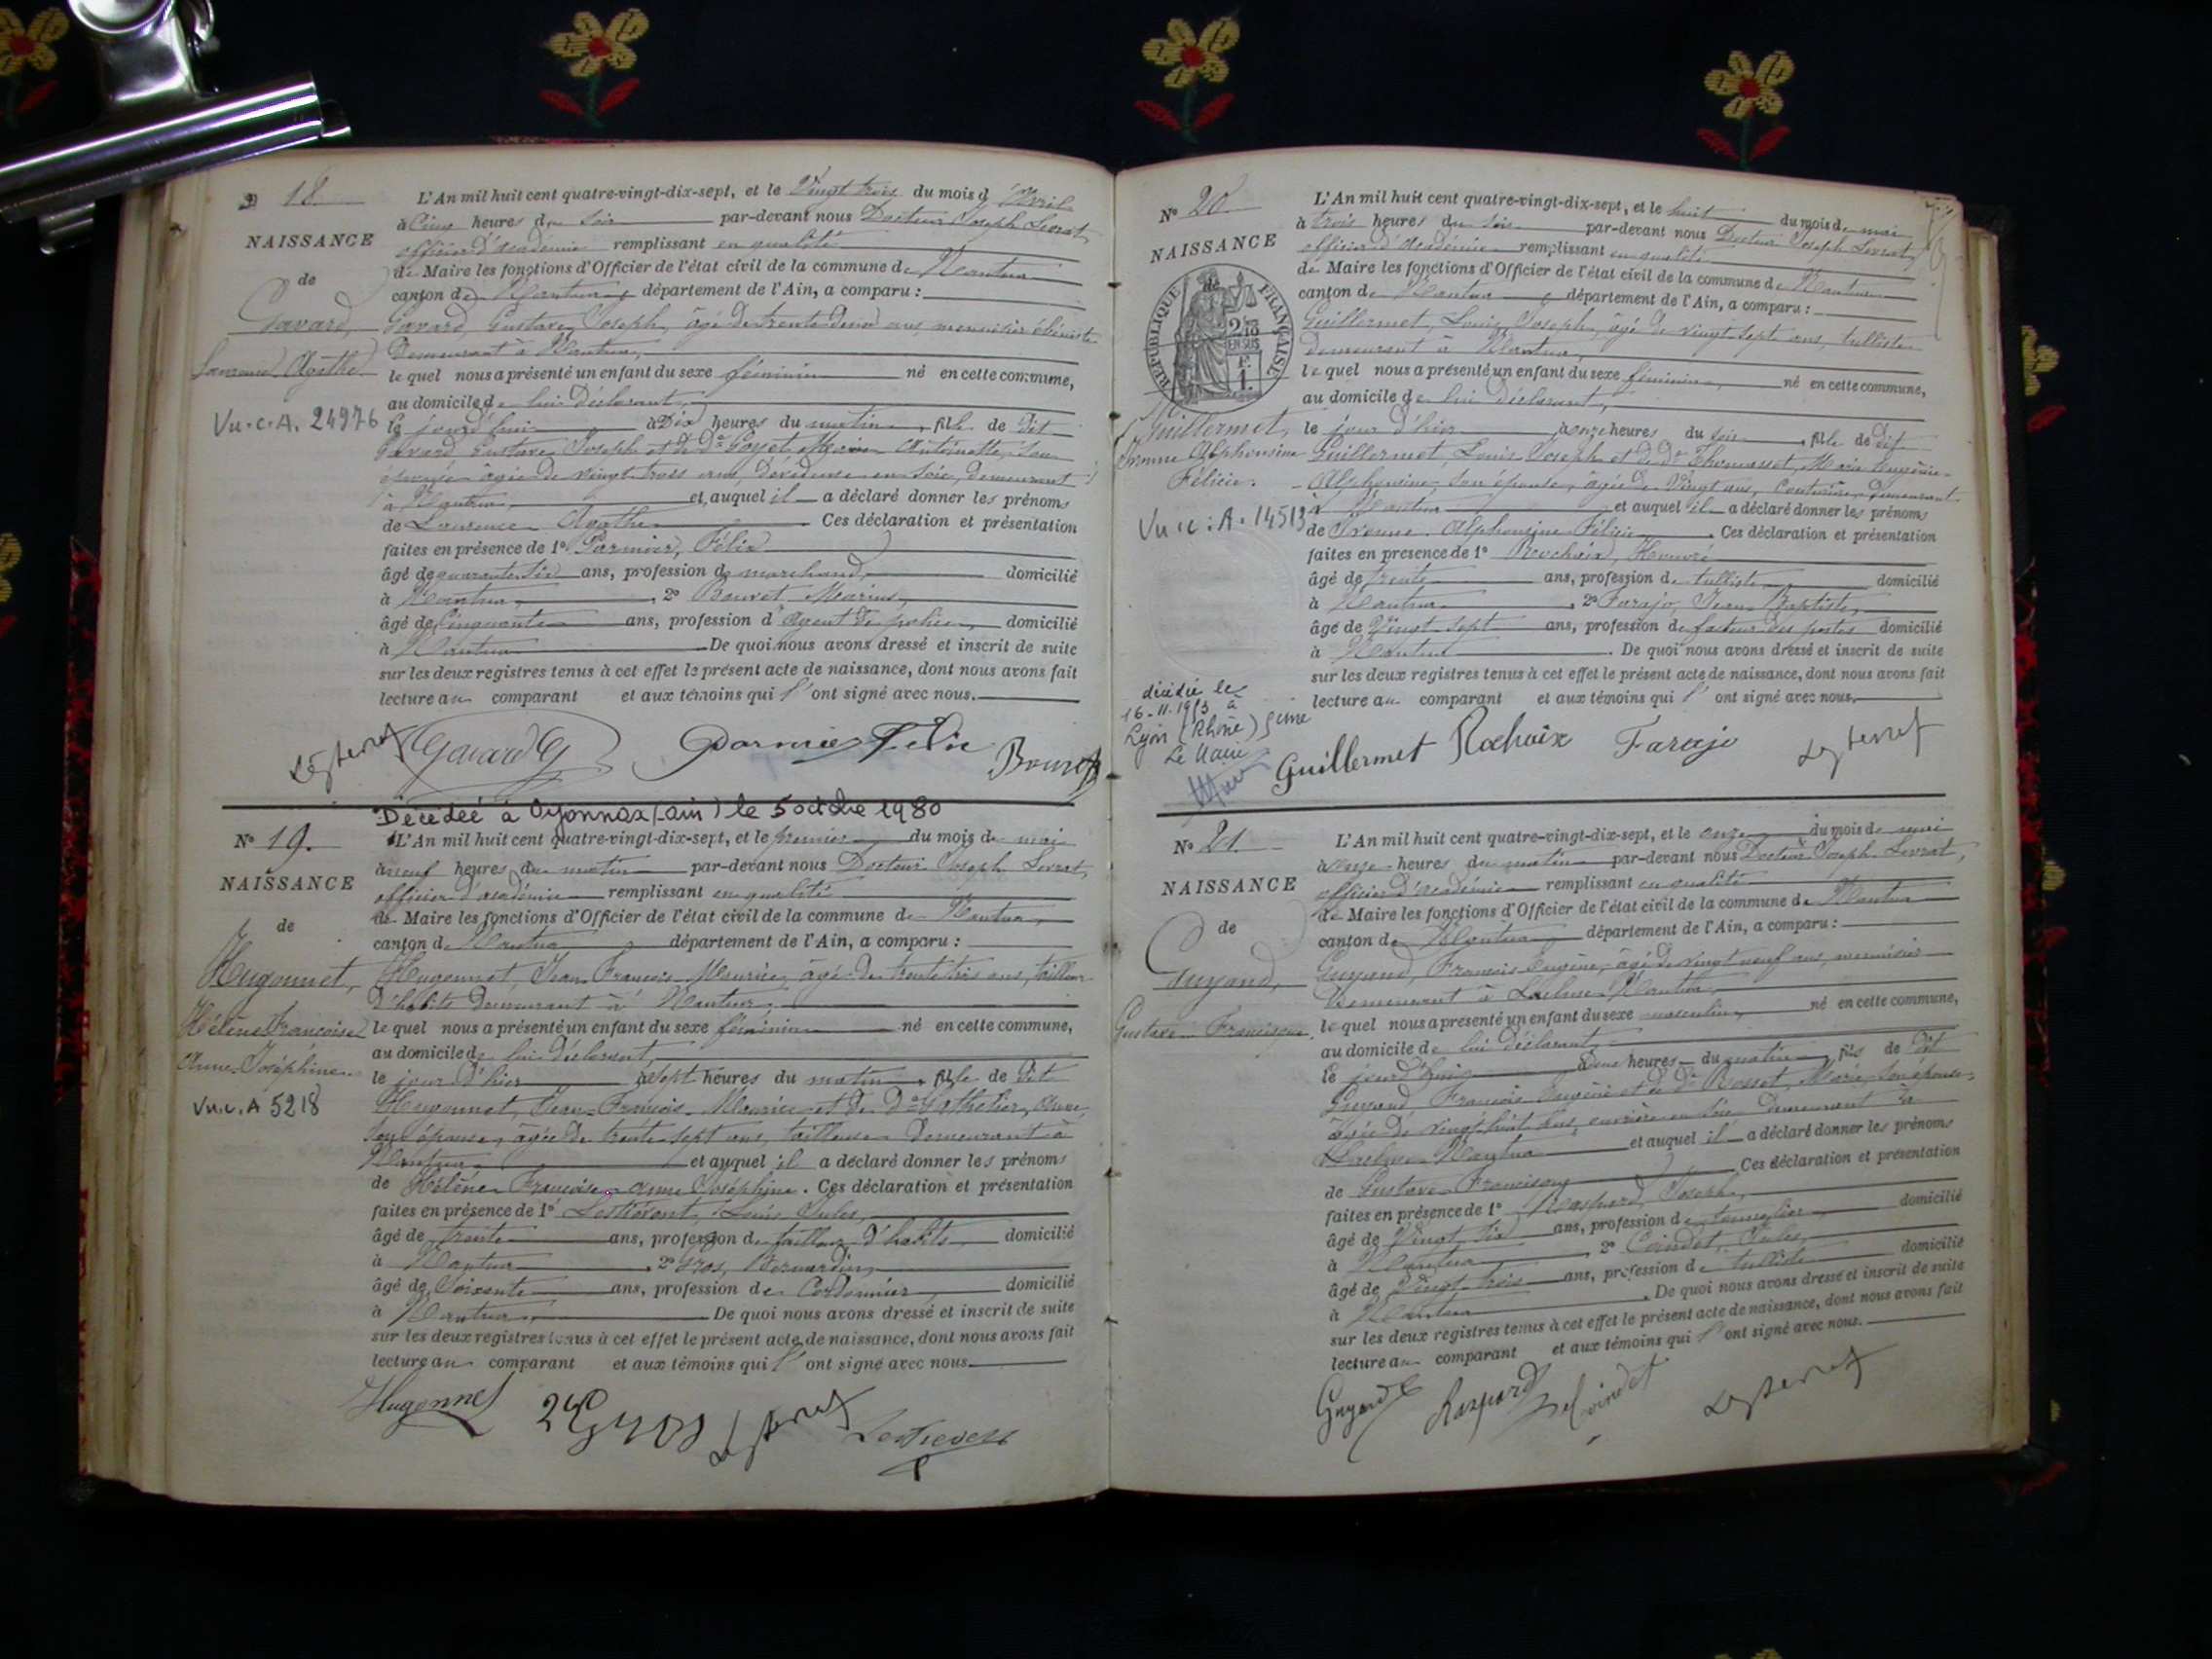 18.
NAISSANCE
de
Gavard,
Laurence Agathe
Vu.c.A. 24976
L'An mil huit cent quatre-vingt-dix-sept, et le Vingt trois du mois d'Avril
à Cinq heures du soir par-devant nous Docteur Joseph Levrat,
officier d'académie remplissant en qualité
de Maire les fonctions d'Officier de l'état civil de la commune de Nantua
canton de Nantua, département de l'Ain, a comparu :
Gavard, Gustave Joseph, âgé de trente deux ans, menuisier ébéniste
demeurant à Nantua,
le quel nous a présenté un enfant du sexe féminin né en cette commune,
au domicile de lui déclarant,
le jourd'hui à Dix heures du matin, fille de dit
Gavard Gustave Joseph et de De Goyet Antoinette, son
épouse âgée de vingt trois ans, dévideuse en soie, demeurant
à Nantua, et auquel il a déclaré donner les prénoms
de Laurence Agathe. Ces déclaration et présentation
faites en présence de 1° Parmier, Félix
âgé de quarante six ans, profession de marchand, domicilié
à Nantua, 2° Bouvet Marius,
âgé de Cinquante ans, profession d'agent de police, domicilié
à Nantua De quoi nous avons dressé et inscrit de suite
sur les deux registres tenus à cet effet le présent acte de naissance, dont nous avons fait
lecture au comparant et aux témoins qui l'ont signé avec nous.
Gavard G Parmier Felix Bouvet
Décédée à Oyonnax (Ain) le 5 octobre 1980
N° 19.
NAISSANCE
de
Hugonnet,
Hélène Françoise
Anne Joséphine
Vu.c.A 5218
L'An mil huit cent quatre-vingt-dix-sept, et le premier du mois de mai
à neuf heures du matin par-devant nous Docteur Joseph Levrat,
officier d'académie remplissant en qualité
de Maire les fonctions d'Officier de l'état civil de la commune de Nantua,
canton de Nantua département de l'Ain, a comparu :
Hugonnet, Jean François Maurice, âgé de trente trois ans, tailleur
d'habits demeurant à Nantua,
le quel nous a présenté un enfant du sexe féminin né en cette commune,
au domicile de lui déclarant,
le jour d'hier à sept heures du matin, fille de dit
Hugonnet, Jean François Maurice et de De Anne,
son épouse, âgée de trente sept ans, tailleuse demeurant à
Nantua et auquel il a déclaré donner les prénoms
de Hélène Françoise Anne Joséphine. Ces déclaration et présentation
faites en présence de 1° Louis Jules,
âgé de trente ans, profession de tailleur d'habits domicilié
à Nantua, 2° Gros, Bernardin,
âgé de Soixante ans, profession de Cordonnier, domicilié
à Nantua, De quoi nous avons dressé et inscrit de suite
sur les deux registres tenus à cet effet le présent acte de naissance, dont nous avons fait
lecture au comparant et aux témoins qui l'ont signé avec nous.
Hugonnet Gros
N° 20
NAISSANCE
de
RÉPUBLIQUE FRANÇAISE
2/10 EN SUS
F. 1.
Guillermet,
Ivonne Alphonsine
Félicie.
Vu.c.A. 14513
décédée le
16.11.1983 à
Lyon (Rhône) 5ème
Le Maire
L'An mil huit cent quatre-vingt-dix-sept, et le huit du mois de mai
à trois heures du soir par-devant nous Docteur Joseph Levrat,
officier d'académie remplissant en qualité
de Maire les fonctions d'Officier de l'état civil de la commune de Nantua
canton de Nantua, département de l'Ain, a comparu :
Guillermet, Louis Joseph, âgé de vingt sept ans, tulliste
demeurant à Nantua,
le quel nous a présenté un enfant du sexe féminin, né en cette commune,
au domicile de lui déclarant,
le jour d'hier à onze heures du soir, fille de dit
Guillermet, Louis Joseph et de De Thomasset, Marie Eugénie
Alphonsine, son épouse, âgée de vingt ans, Couturière, demeurant
à Nantua et auquel il a déclaré donner les prénoms
de Ivonne Alphonsine Félicie. Ces déclaration et présentation
faites en présence de 1° Rochaix, Honoré
âgé de trente ans, profession de tulliste, domicilié
à Nantua, 2° Farajo, Jean Baptiste,
âgé de Vingt sept ans, profession de facteur des postes domicilié
à Nantua. De quoi nous avons dressé et inscrit de suite
sur les deux registres tenus à cet effet le présent acte de naissance, dont nous avons fait
lecture au comparant et aux témoins qui l'ont signé avec nous.
Guillermet Rochaix Farajo
N° 21
NAISSANCE
de
Guyand,
Gustave Francisque
L'An mil huit cent quatre-vingt-dix-sept, et le onze du mois de mai
à onze heures du matin par-devant nous Docteur Joseph Levrat,
officier d'académie remplissant en qualité
de Maire les fonctions d'Officier de l'état civil de la commune de Nantua
canton de Nantua département de l'Ain, a comparu :
Guyand, François Eugène, âgé de vingt neuf ans, menuisier
demeurant à Nantua,
le quel nous a présenté un enfant du sexe masculin, né en cette commune,
au domicile de lui déclarant,
le jourd'hui à deux heures du matin, fils de dit
Guyand, François Eugène et de De Marie, son épouse,
âgée de vingt huit ans, ouvrière en soie demeurant à
Nantua et auquel il a déclaré donner les prénoms
de Gustave Francisque Ces déclaration et présentation
faites en présence de 1° Raspard, Joseph,
âgé de Vingt six ans, profession de tonnelier domicilié
à Nantua, 2° Coindet, Jules,
âgé de Vingt trois ans, profession de tulliste domicilié
à Nantua. De quoi nous avons dressé et inscrit de suite
sur les deux registres tenus à cet effet le présent acte de naissance, dont nous avons fait
lecture au comparant et aux témoins qui l'ont signé avec nous.
Guyand Raspard J. Coindet